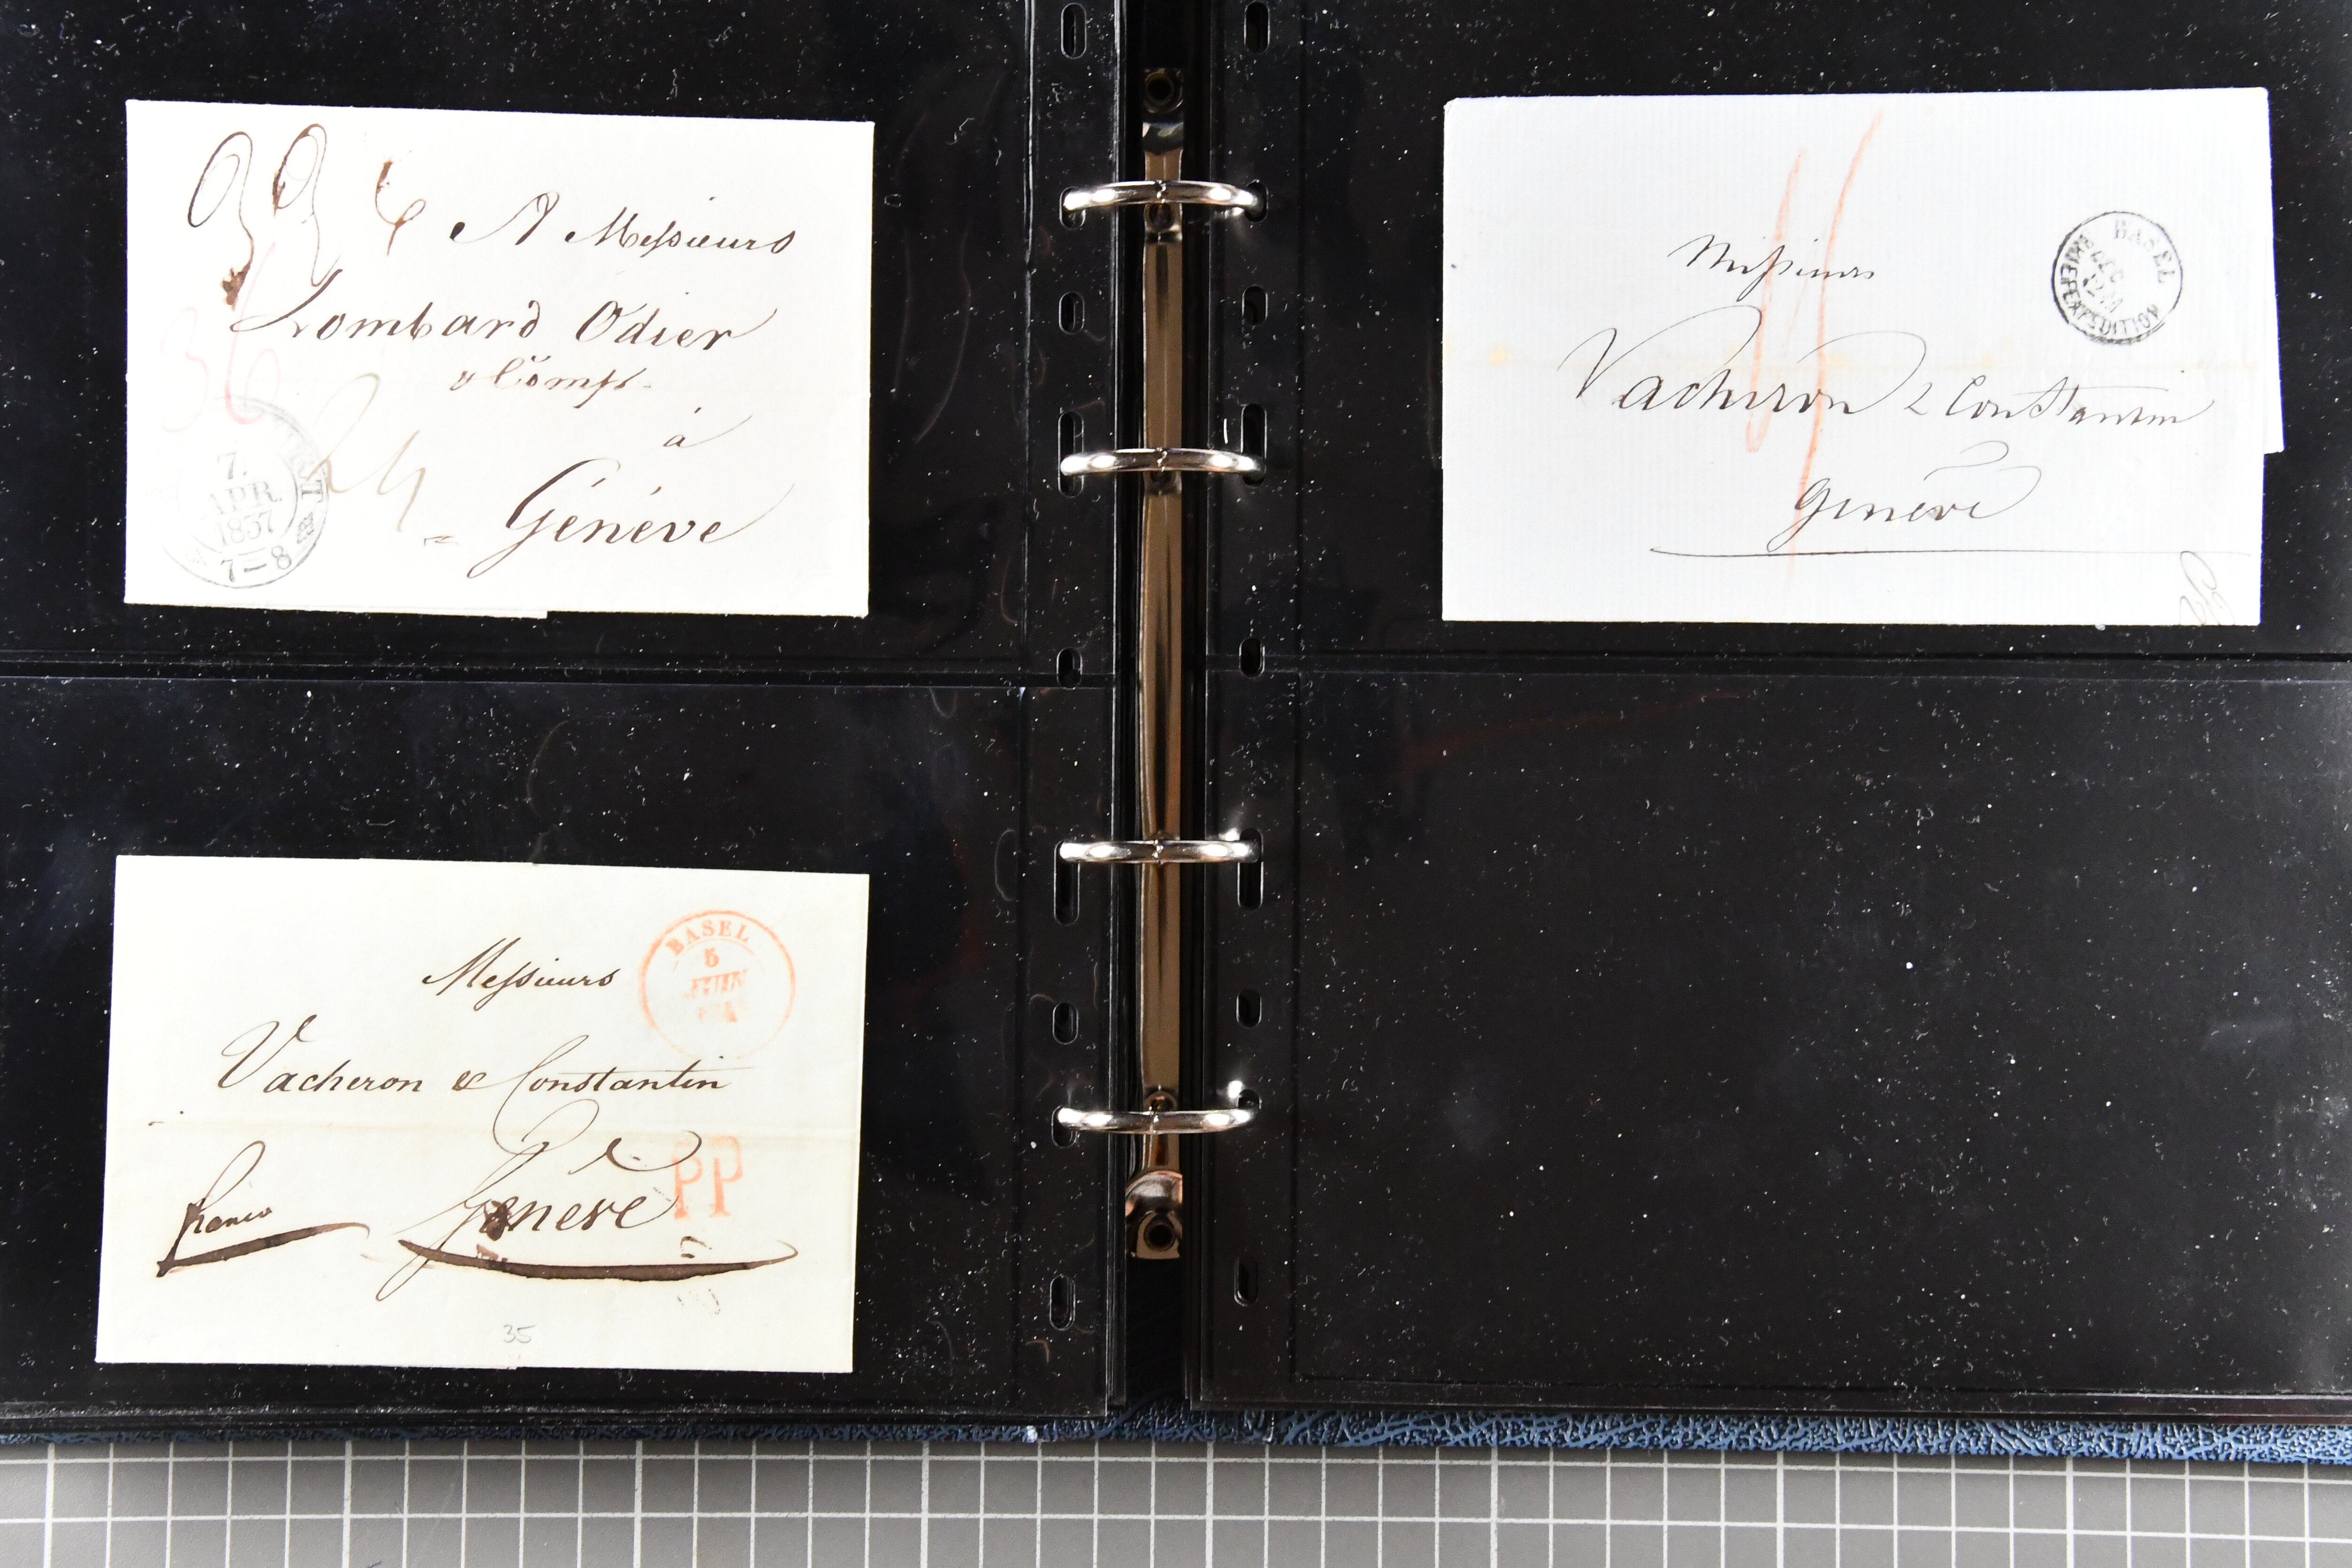 A Messieurs
Lombard Odier
& Comp.
à
Genéve
36
24
7.
APR.
1857
7—8
BASEL
5
JUIN
Messieurs
Vacheron & Constantin
Genève
franco
PP
35
BASEL
BRIEFEXPEDITION
DEC
Messieurs
Vacheron & Constantin
Genève